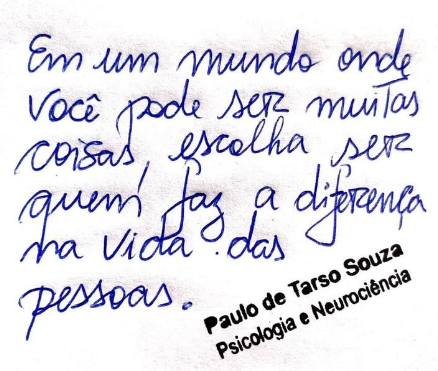 Em um mundo onde
você pode ser muitas
coisas, escolha ser
quem faz a diferença
na vida das
pessoas.
Paulo de Tarso Souza
Psicologia e Neurociência